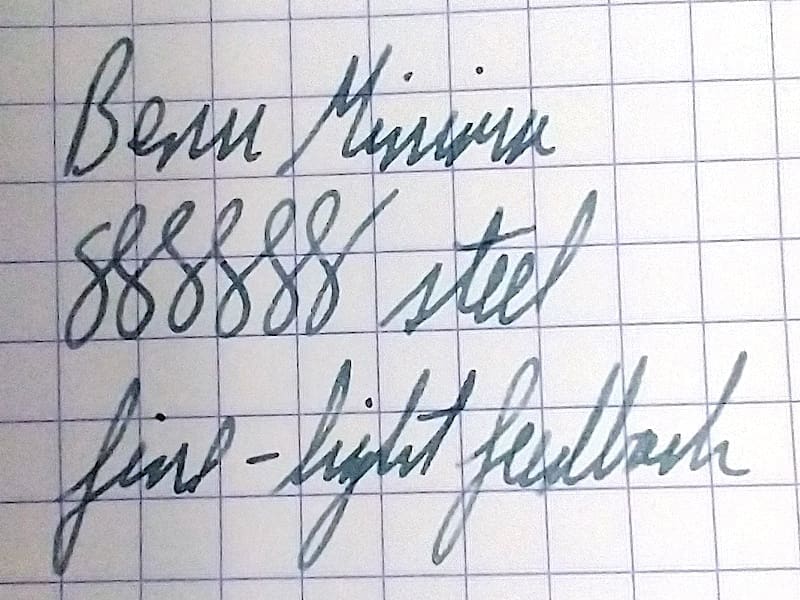 Benu Minima
888888 steel
fine - light feedback